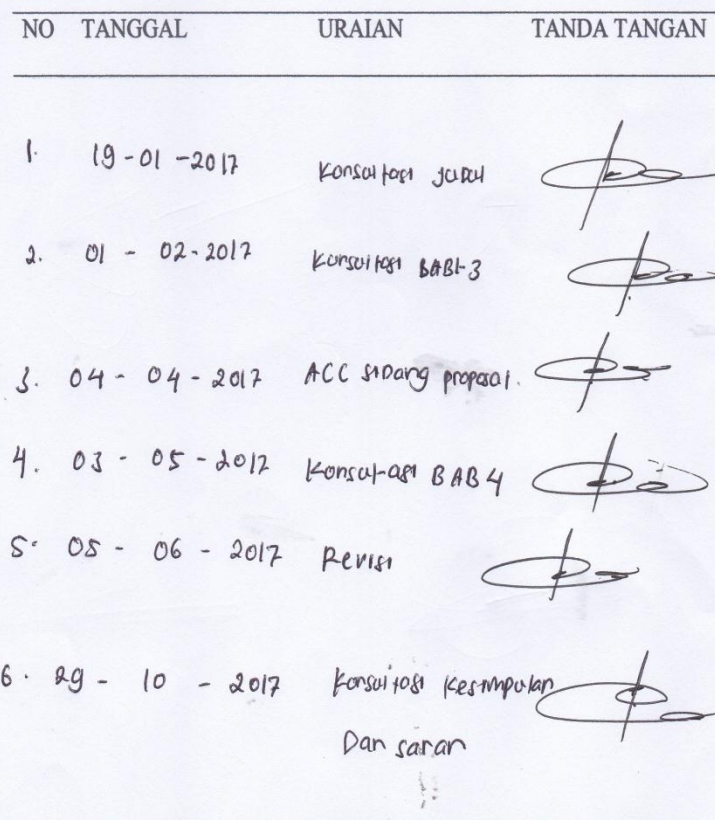 NO TANGGAL URAIAN TANDA TANGAN
1. 19-01-2017 Konsultasi judul
2. 01 - 02-2017 Konsultasi BAB1-3
3. 04 - 04 - 2017 ACC sidang proposal.
4. 03 - 05 - 2017 Konsultasi BAB 4
5. 05 - 06 - 2017 Revisi
6. 29 - 10 - 2017 Konsultasi Kesimpulan
Dan saran